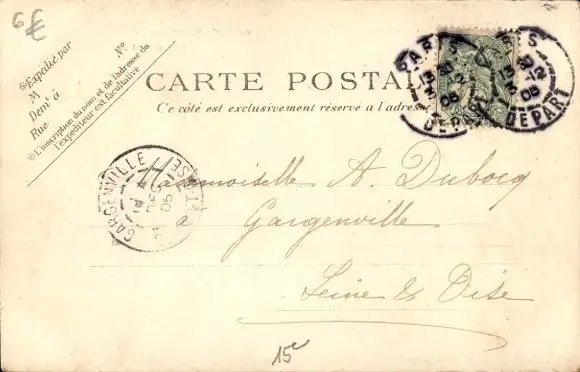 6€
Expédié par
M
Demt à
Rue
No
L'inscription du nom et de l'adresse de
l'expéditeur est facultative
CARTE POSTAL
Ce côté est exclusivement réservé à l'adresse
PARIS
DEPART
DEPART
GARGENVILLE
Mademoiselle A. Dubocq
à Gargenville
Seine & Oise
15